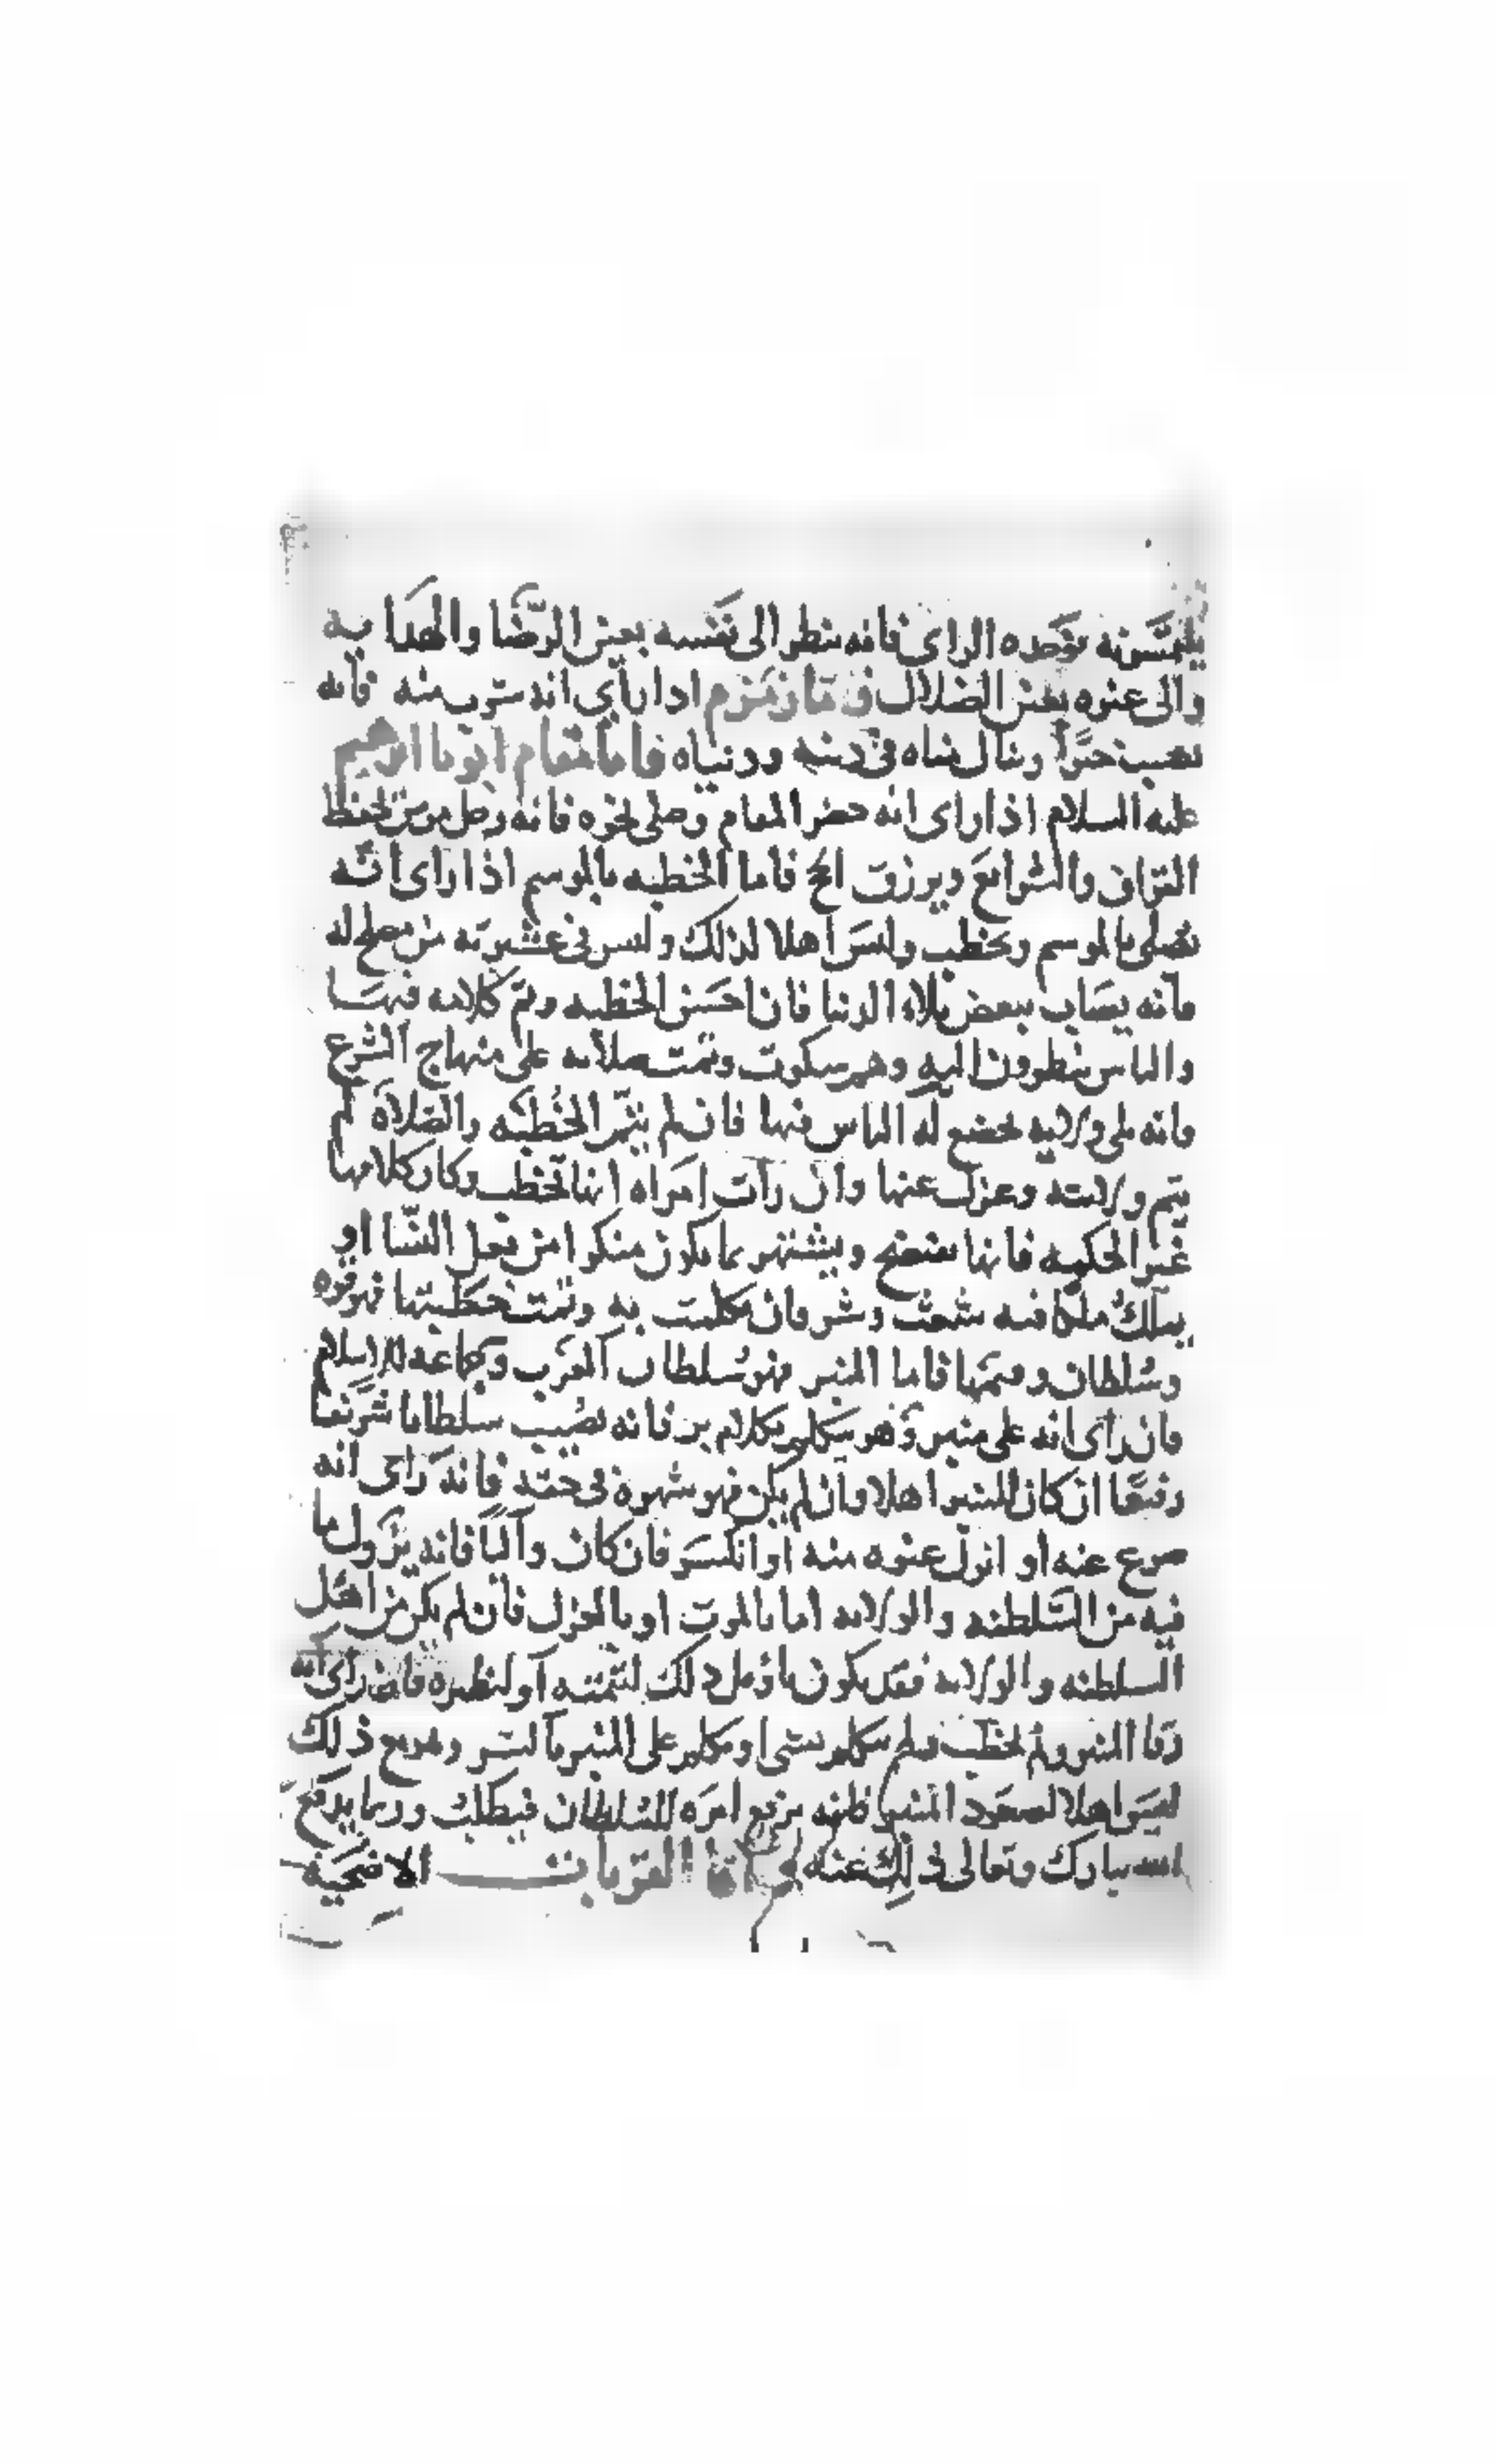 يلتمسونه بوكده الراى فانه ينظر الى نفسه بعين الرضا والهدايه
والى غيره بعين الضلال فى ما زمزم اذا راى انه شرب منه فانه
يصيب خيرا وينال مناه فى دينه ودنياه فاما مقام ابونا ابرهيم
عليه السلام اذا راى انه حضر المقام وصلى نحوه فانه رجل مومن يحفظ
القران والشرايع ويرزق الحج فاما الخطبه بالموسم اذا راى انه
يصلى بالموسم ويخطب وليس اهلا لذلك وليس فى عشيرته من يصلح له
فانه يصاب ببعض بلاء الدنيا فان احسن الخطبه وتم كلامه فيها
والناس ينظرون اليه وهم سكوت وتمت صلاته على منهاج الشرع
فانه يلى ولايه يخضع له الناس فيها فان لم يتم الخطبه والصلاة لم
يتم ولايته وعزل عنها وان رات امراه انها تخطب وكان كلامها
غير الحكمه فانها تفتضح ويشتهر بما يكون منكرا من فعل النسا او
فيه شعث وشر فان تكلمت به وتمت خطبتها فهو قوه
وسلطان وقيمها فاما المنبر فهو سلطان العرب وجماعه الاسلام
فان راى انه على منبر وهو يتكلم بكلام بر فانه يصيب سلطانا شريفا
رفيعا ان كان للمنبر اهلا وان لم يكن فهو شهره فى فانه راى انه
صرع عنه او انزل غيره منه او انكسر فان كان واليا فانه يزول ما
فيه من السلطنه والولايه اما بالموت او بالعزل فان لم يكن من اهل
السلطنه والولايه فقد يكون تاؤيل ذلك او لنظيره فان راى انه
رقا المنبر ولم يخطب ولم يتكلم بشى او تكلم على المنبر بالشر وهو مع ذلك
ليس اهلا لصعود المنبر فانه يرفع امره للسلطان فيطلب وربما يدفع
الله تبارك وتعالى ذلك عنه اما القربات الاضحية